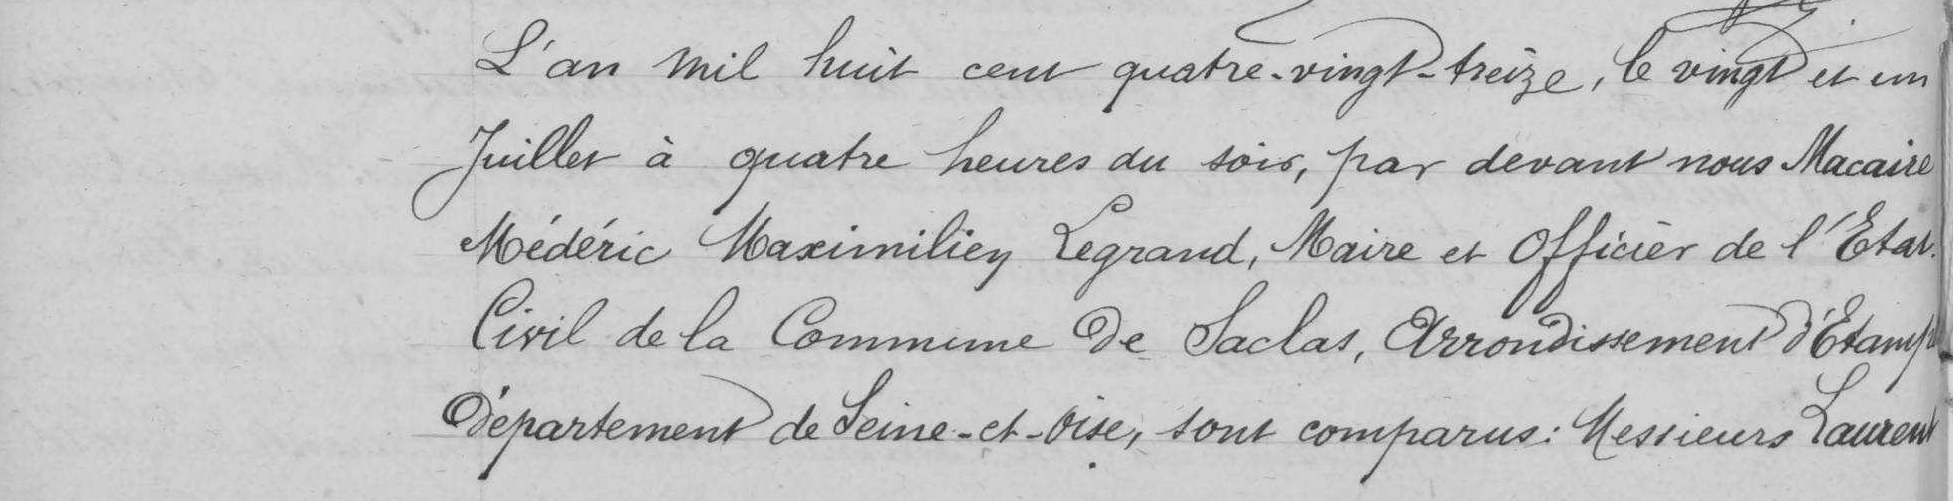 L'an mil huit cent quatre-vingt-treize, le vingt et un
Juillet à quatre heures du soir, par devant nous Macaire
Médéric Maximilien Legrand, Maire et Officier de l'Etat
Civil de la Commune de Saclas, Arrondissement d'Etamp
Département de Seine-et-Oise, sont comparus : Messieurs Laurent